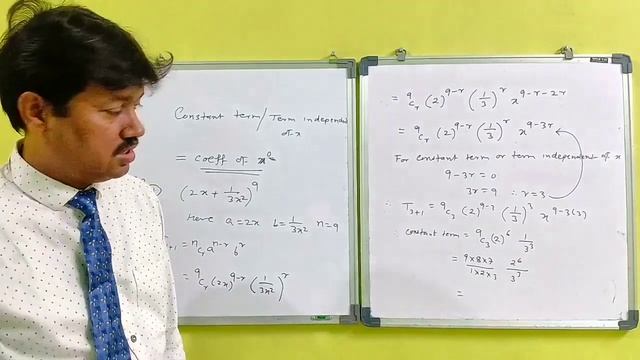 Constant term / Term independent
of x
= coeff of x⁰
(2x + 1/3x²)⁹
Here a = 2x b = 1/3x² n = 9
+1 = ⁿCᵣ aⁿ⁻ʳ bʳ
= ⁹Cᵣ (2x)⁹⁻ʳ (1/3x²)ʳ
= ⁹Cᵣ (2)⁹⁻ʳ (1/3)ʳ x⁹⁻ʳ⁻²ʳ
= ⁹Cᵣ (2)⁹⁻ʳ (1/3)ʳ x⁹⁻³ʳ
For constant term or term independent of x
9-3r = 0
3r = 9 ∴ r = 3
∴ T₃₊₁ = ⁹C₃ (2)⁹⁻³ (1/3)³ x⁹⁻³⁽³⁾
constant term = ⁹C₃ (2)⁶ 1/3³
= 9×8×7/1×2×3 2⁶/3³
=